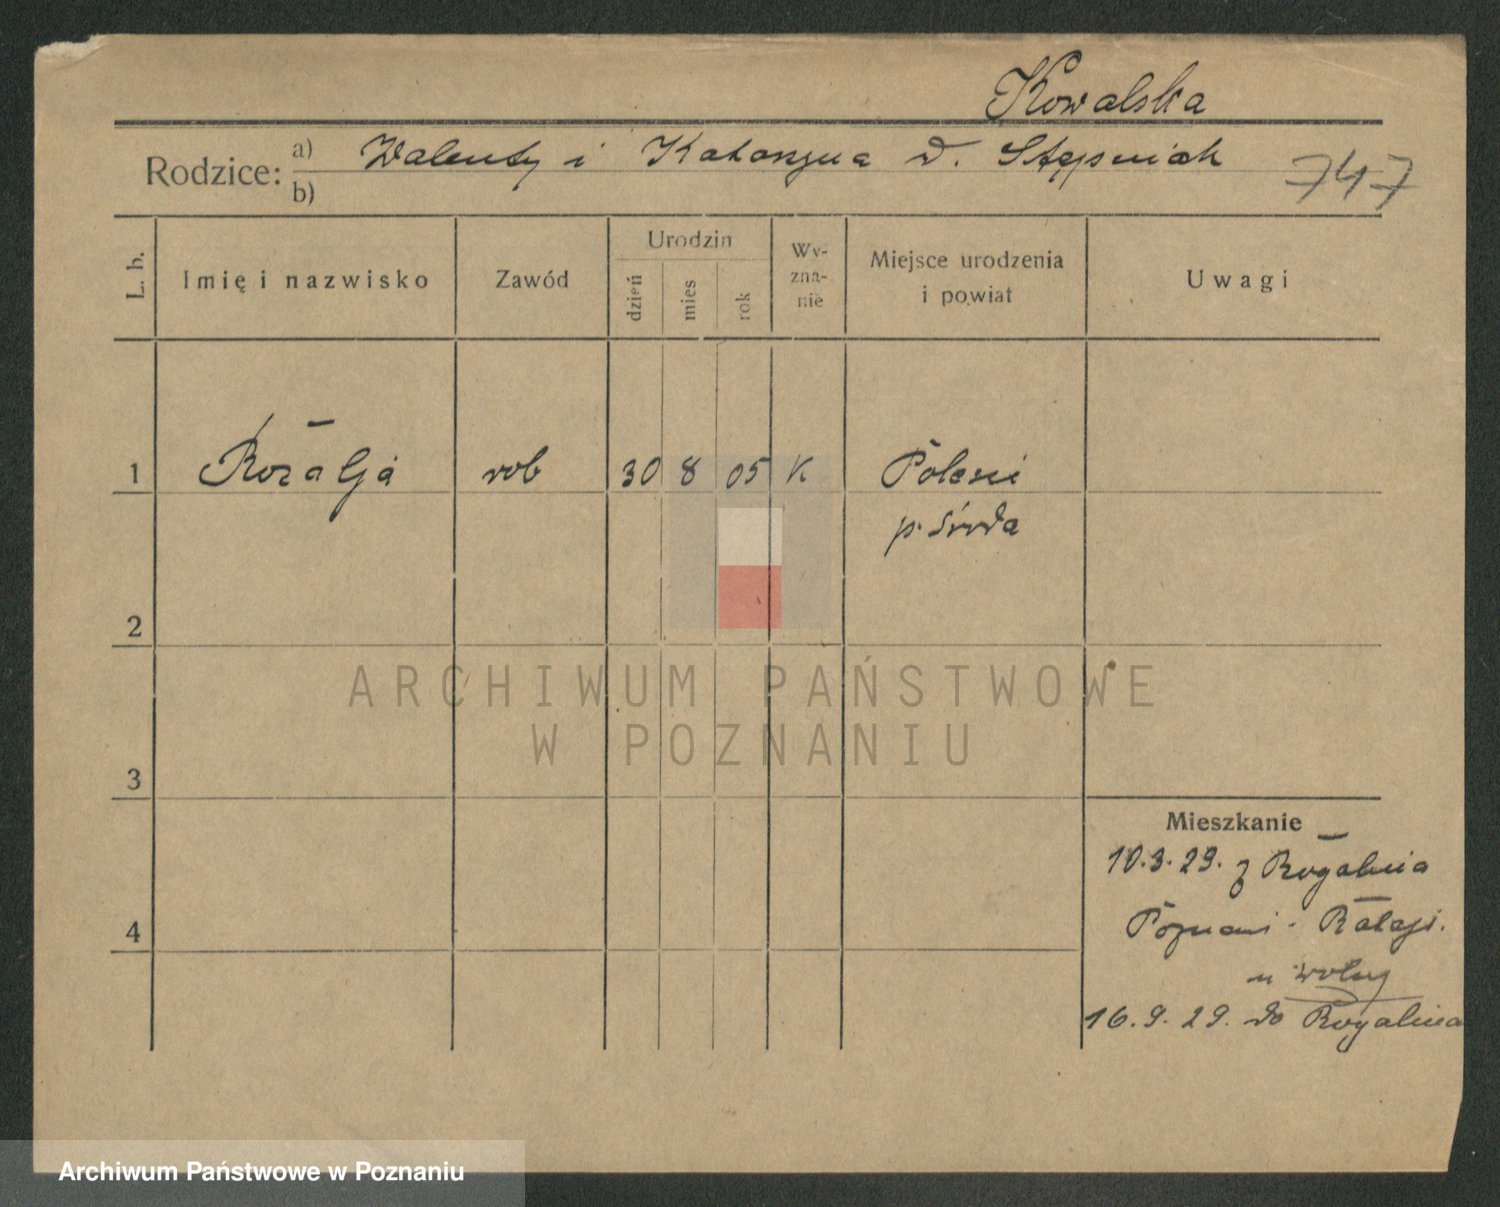 Kowalska
Rodzice: a) Walenty i Katarzyna d. Stępniak
b)
747
L. b. Imię i nazwisko Zawód Urodzin dzień mies rok Wy-zna-nie Miejsce urodzenia i powiat Uwagi
1 Rozalja rob 30 8 05 K Polesie
p. Środa
2
3
4
Mieszkanie
10.3.29. z Rogalina
Poznań - Rataje.
16.9.29. do Rogalina
ARCHIWUM PAŃSTWOWE
W POZNANIU
Archiwum Państwowe w Poznaniu